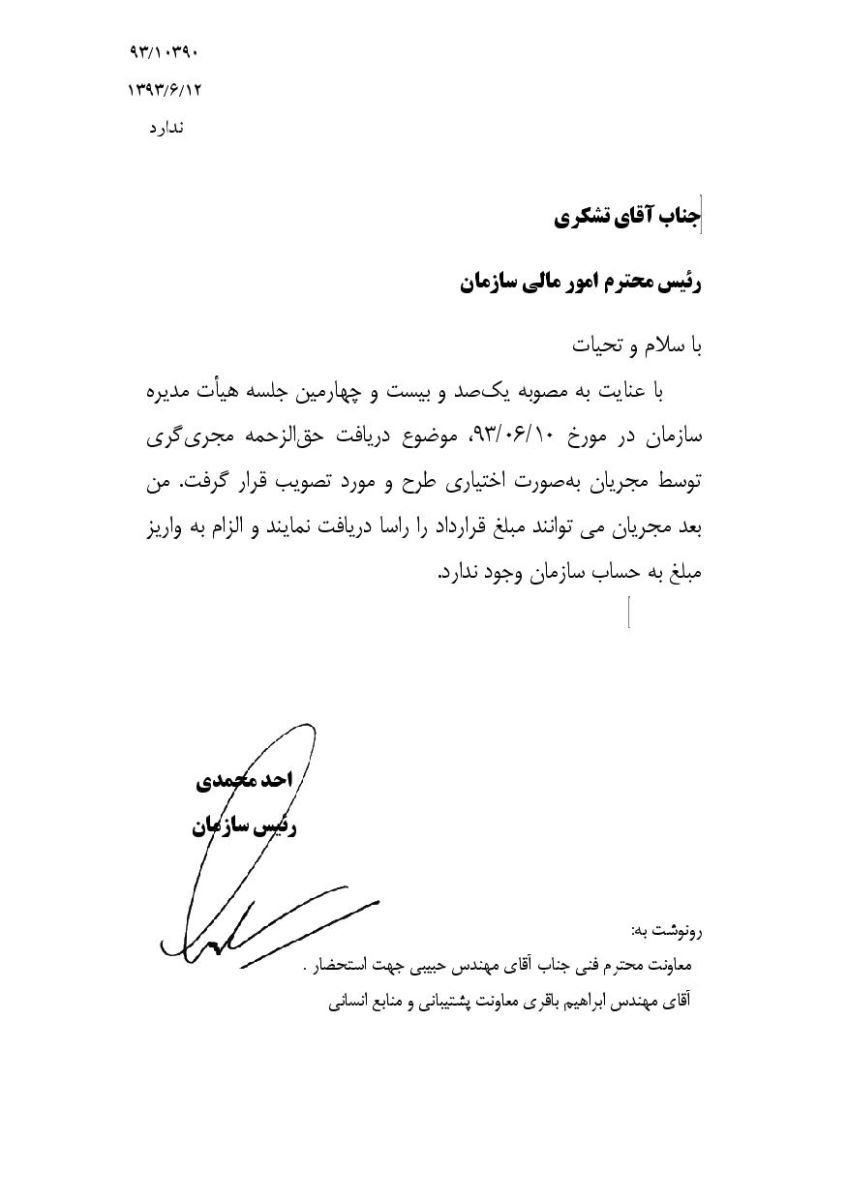 ۹۳/۱۰۳۹۰
۱۳۹۳/۶/۱۲
ندارد
جناب آقای تشکری
رئیس محترم امور مالی سازمان
با سلام و تحیات
با عنایت به مصوبه یک‌صد و بیست و چهارمین جلسه هیأت مدیره
سازمان در مورخ ۹۳/۰۶/۱۰، موضوع دریافت حق‌الزحمه مجری‌گری
توسط مجریان به‌صورت اختیاری طرح و مورد تصویب قرار گرفت. من
بعد مجریان می توانند مبلغ قرارداد را راسا دریافت نمایند و الزام به واریز
مبلغ به حساب سازمان وجود ندارد.
احد محمدی
رئیس سازمان
رونوشت به:
معاونت محترم فنی جناب آقای مهندس حبیبی جهت استحضار .
آقای مهندس ابراهیم باقری معاونت پشتیبانی و منابع انسانی